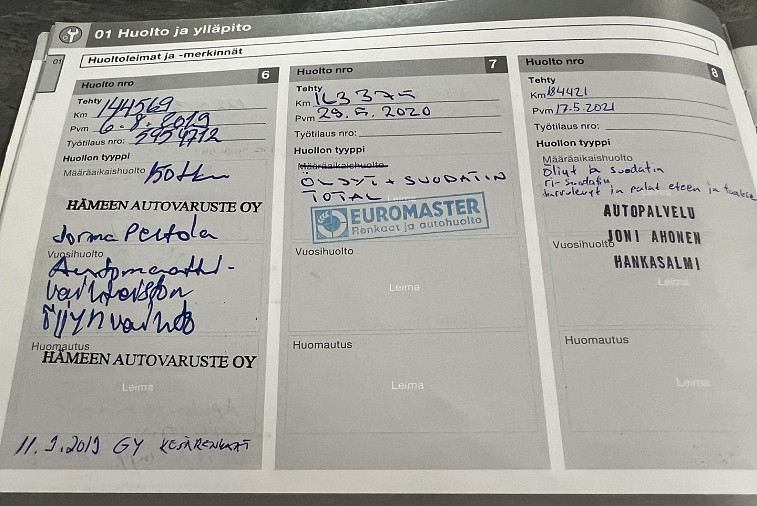 01 Huolto ja ylläpito
01
Huoltoleimat ja -merkinnät
Huolto nro 6
Tehty
Km 144569
Pvm 6.8.2019
Työtilaus nro: 5954712
Huollon tyyppi
Määräaikaishuolto 150tkm
HÄMEEN AUTOVARUSTE OY
Jorma Peltola
Vuosihuolto
Automaatti-
vaihteiston
öljyn vaihto
Huomautus
HÄMEEN AUTOVARUSTE OY
Leima
11.9.2019 GY KESÄRENKAAT
Huolto nro 7
Tehty
Km 163375
Pvm 29.5.2020
Työtilaus nro:
Huollon tyyppi
Määräaikaishuolto
ÖLJYT + SUODATIN
TOTAL
EUROMASTER
Renkaat ja autohuolto
Vuosihuolto
Leima
Huomautus
Leima
Huolto nro 8
Tehty
Km 184421
Pvm 17.5.2021
Työtilaus nro:
Huollon tyyppi
Määräaikaishuolto
Öljyt ja suodatin
ri-suodatin
jarrulevyt ja palat eteen ja taakse
AUTOPALVELU
JONI AHONEN
Vuosihuolto
HANKASALMI
Leima
Huomautus
Leima